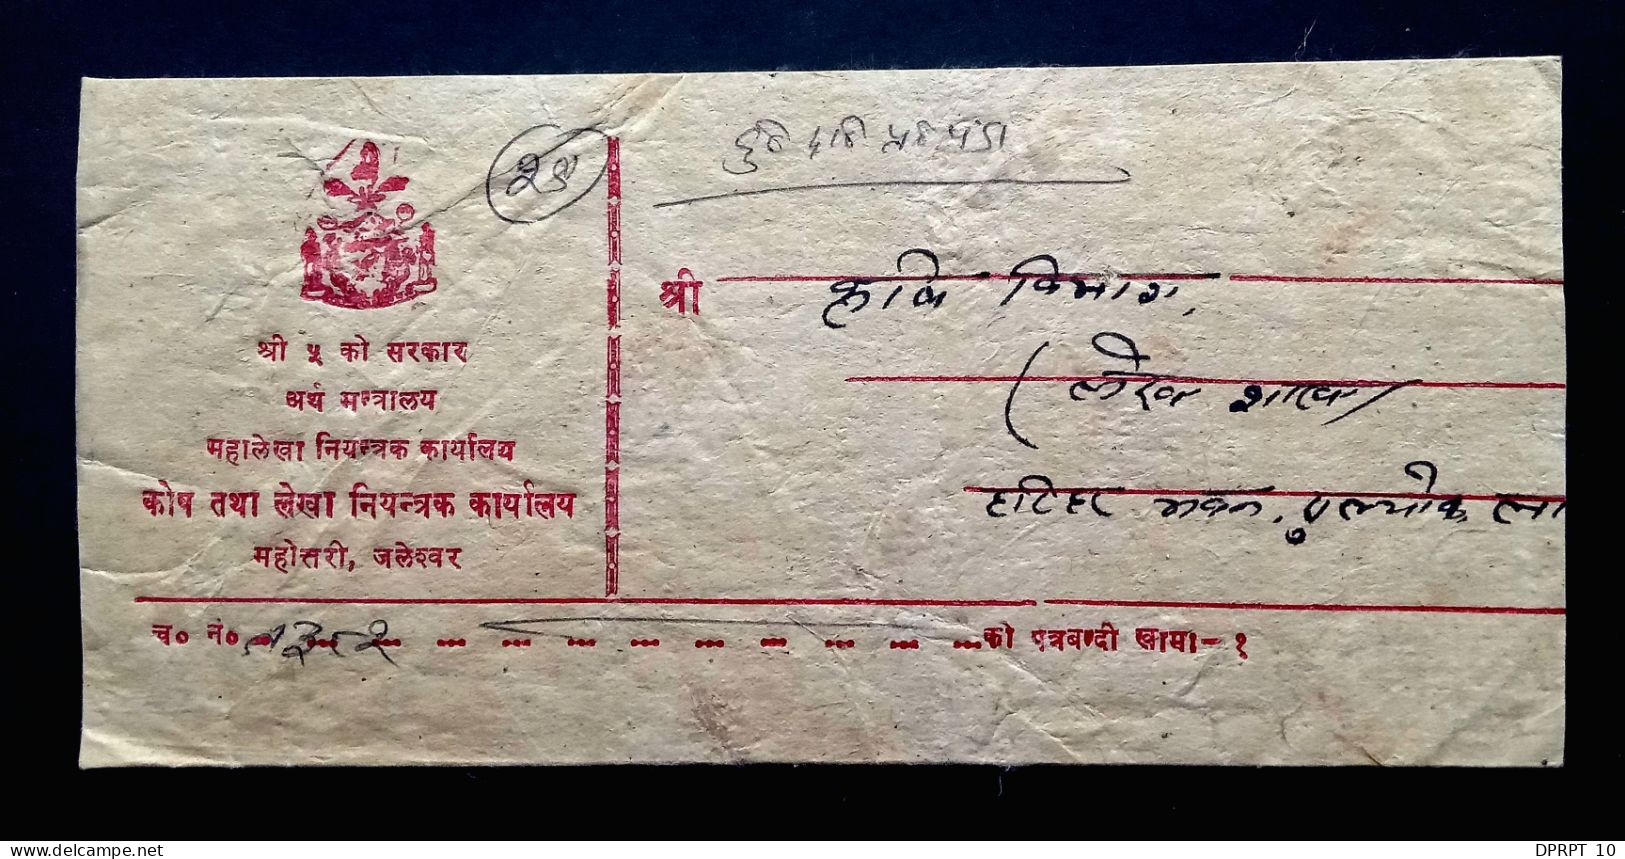 श्री ५ को सरकार
अर्थ मन्त्रालय
महालेखा नियन्त्रक कार्यालय
कोष तथा लेखा नियन्त्रक कार्यालय
महोत्तरी, जलेश्वर
श्री कृषि विभाग,
(लेखा शाखा)
हरिहर भवन,
च० नं० को पत्रबन्दी खामा-१
delcampe.net
DPRPT 10